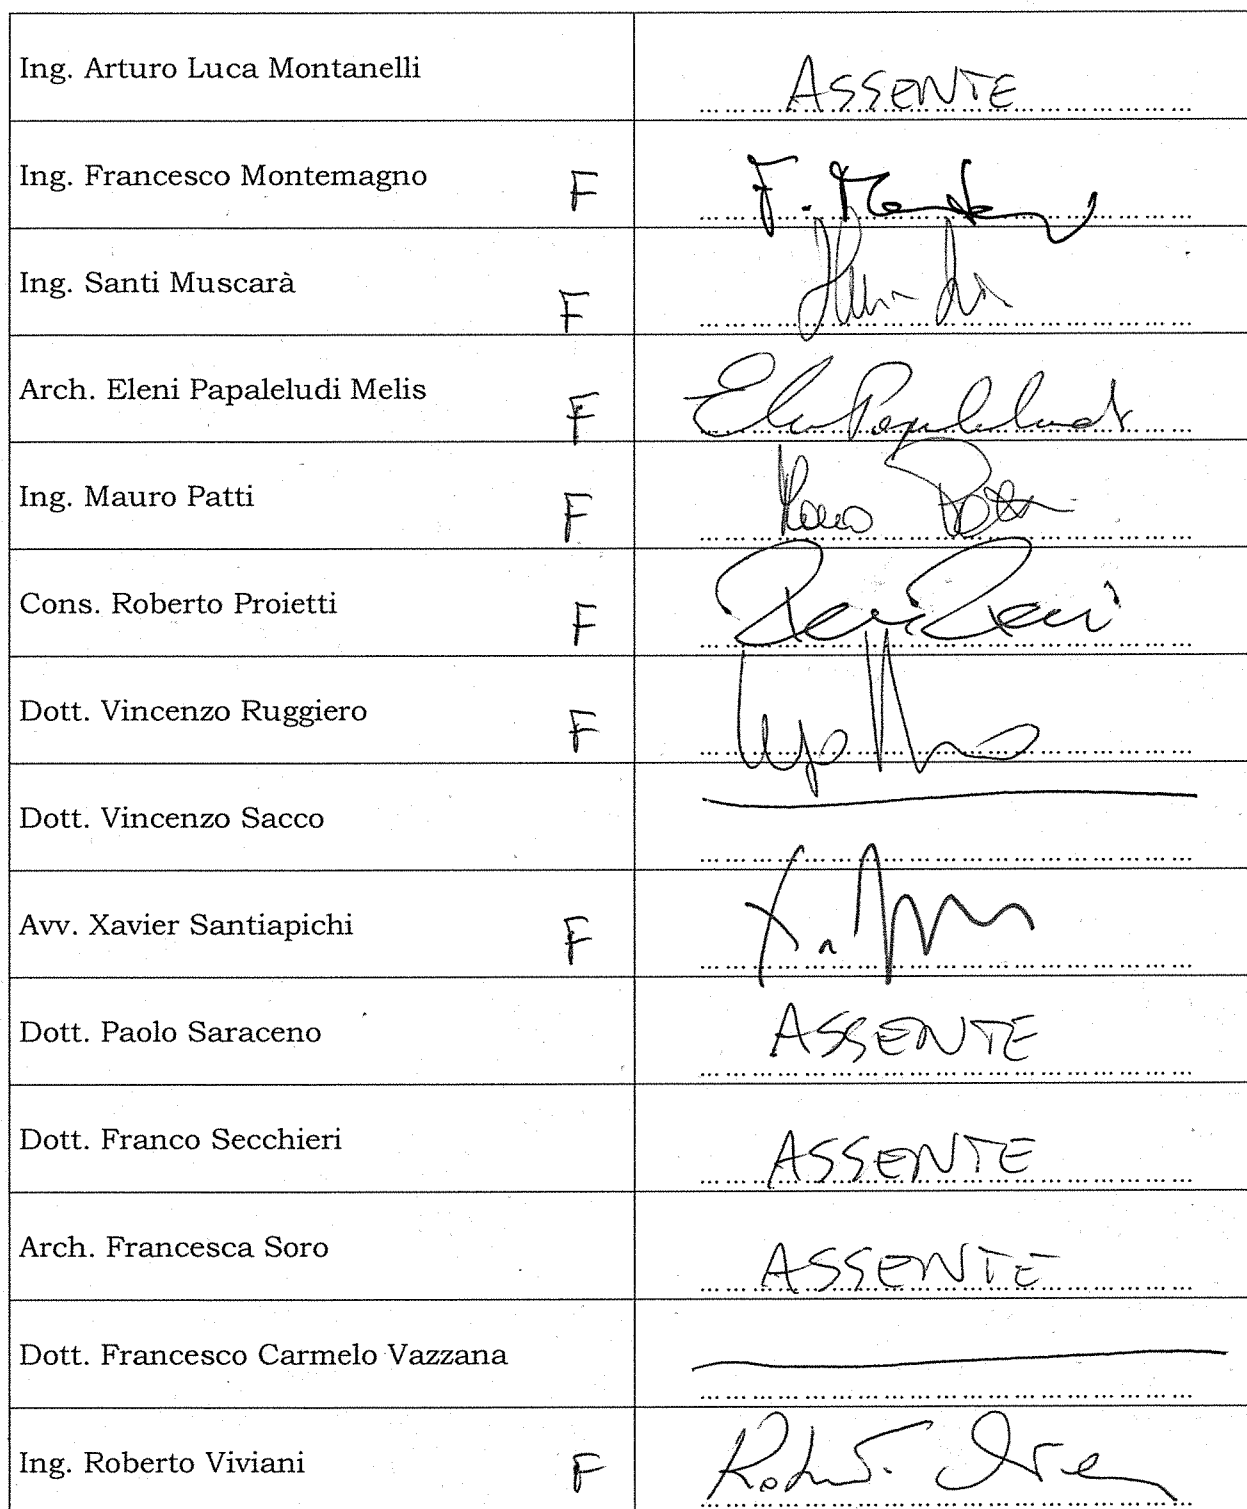 Ing. Arturo Luca Montanelli ASSENTE
Ing. Francesco Montemagno F F.
Ing. Santi Muscarà F
Arch. Eleni Papaleludi Melis F Papaleludi
Ing. Mauro Patti F Mauro Patti
Cons. Roberto Proietti F
Dott. Vincenzo Ruggiero F
Dott. Vincenzo Sacco
Avv. Xavier Santiapichi F X.
Dott. Paolo Saraceno ASSENTE
Dott. Franco Secchieri ASSENTE
Arch. Francesca Soro ASSENTE
Dott. Francesco Carmelo Vazzana
Ing. Roberto Viviani F